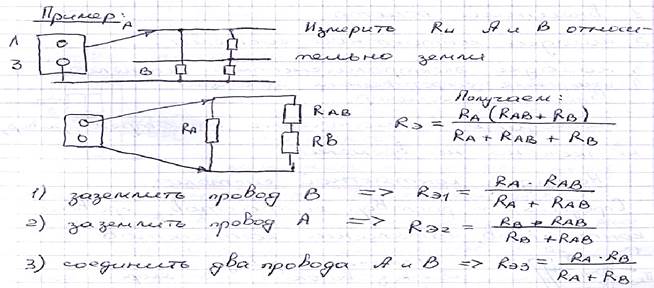 Пример:
A
Л
З
B
Измерить Rи A и B относи-
тельно земли
RA
RAB
RB
Получаем:
Rэ = RA (RAB + RB) / RA + RAB + RB
1) заземлить провод B => Rэ1 = RA · RAB / RA + RAB
2) заземлить провод A => Rэ2 = RB · RAB / RB + RAB
3) соединить два провода A и B => Rэ3 = RA · RB / RA + RB